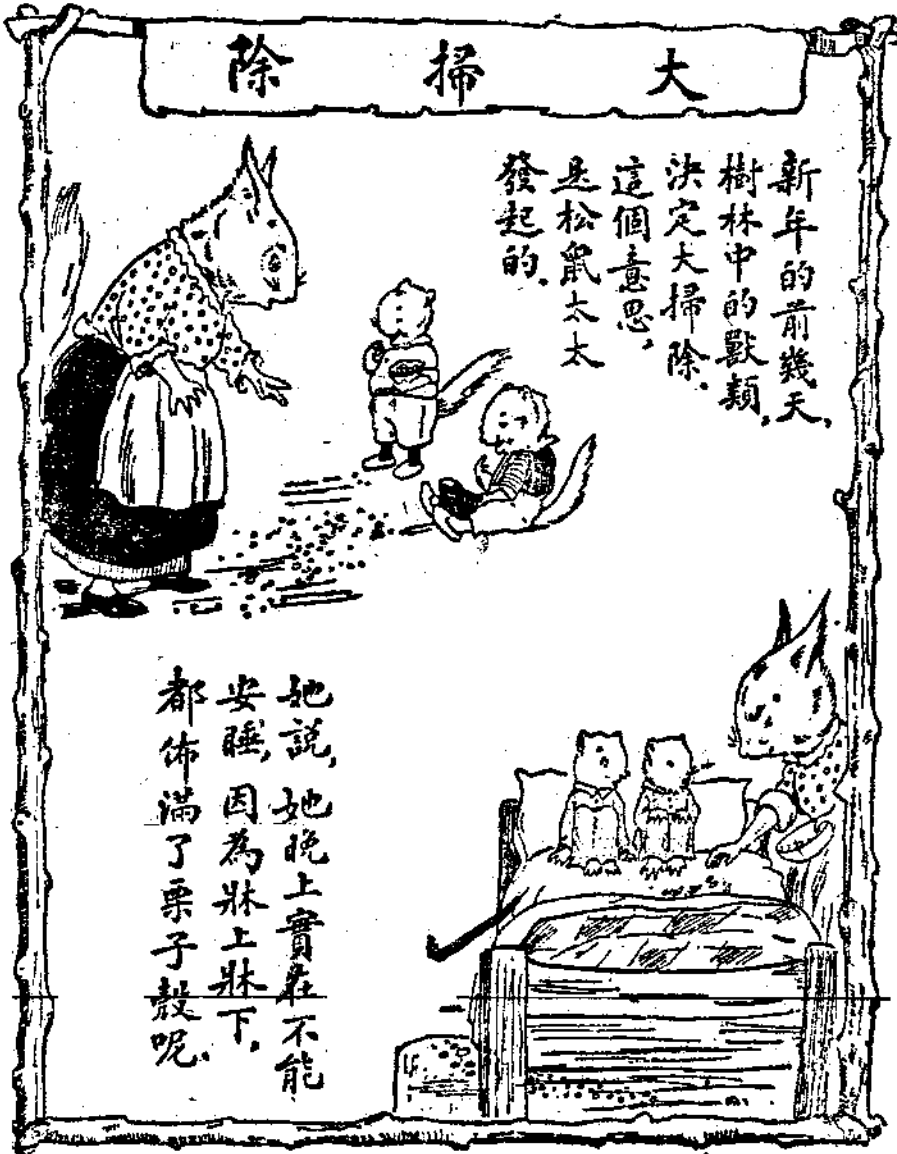 大掃除
新年的前幾天，
樹林中的獸類，
決定大掃除．
這個意思，
是松鼠太太
發起的．
她說，她晚上實在不能
安睡，因為牀上牀下，
都佈滿了栗子殼呢．